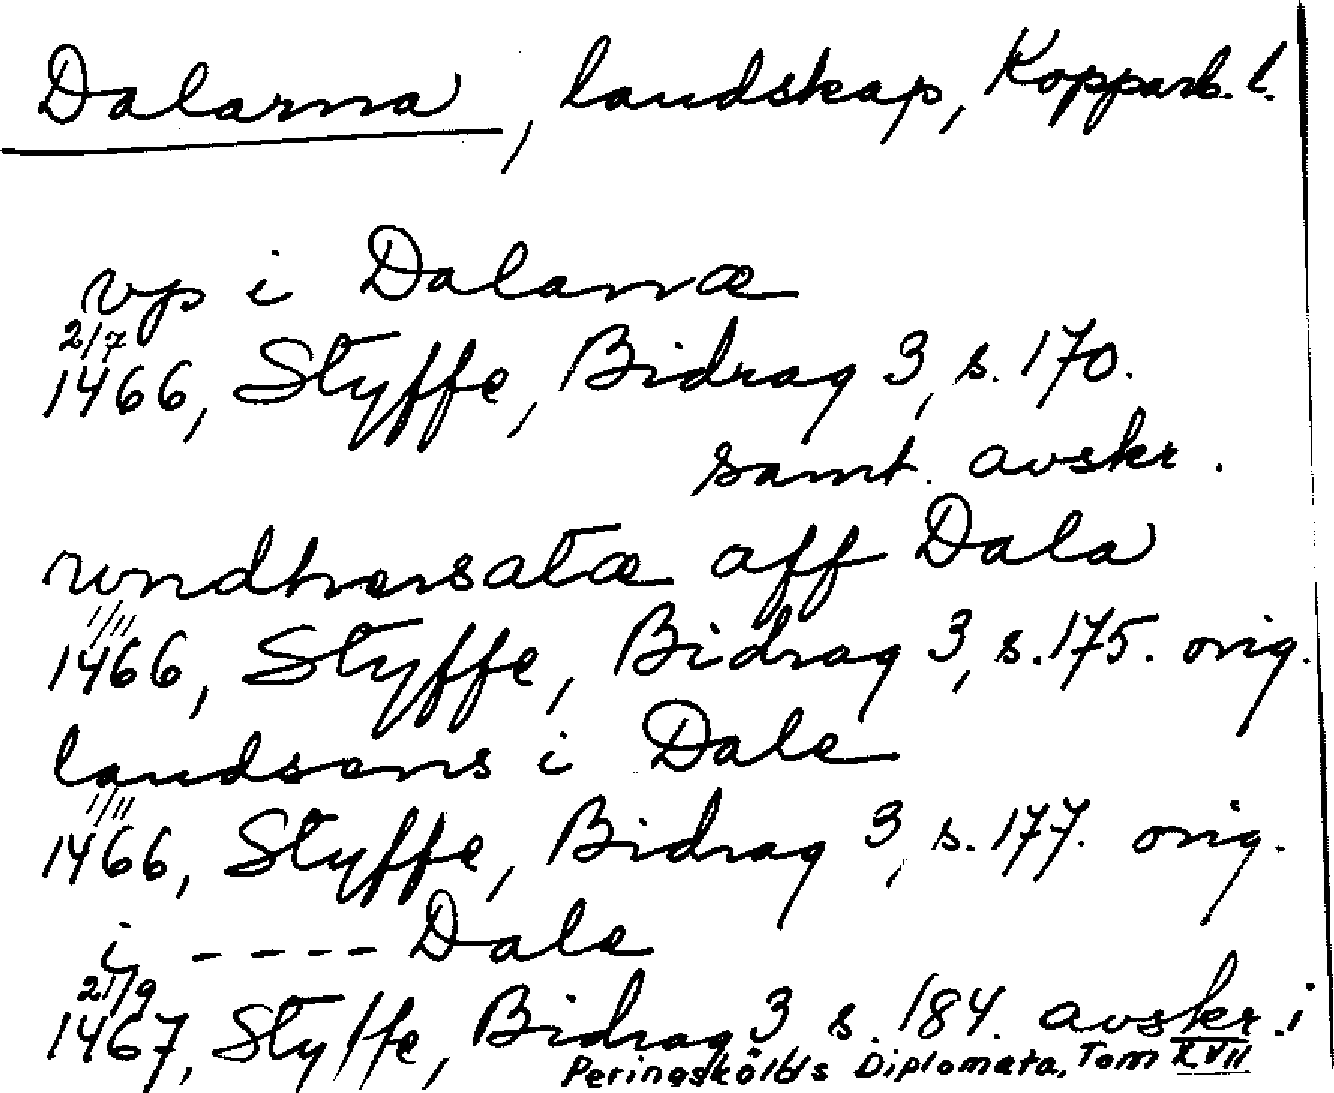 Dalarna, landskap, Kopparb. l.
vp i Dalarnæ
2/7
1466, Styffe, Bidrag 3, s. 170.
samt. avskr.
vndhersatæ aff Dala
1/11
1466, Styffe, Bidrag 3, s. 175. orig.
landsens i Dale
1/11
1466, Styffe, Bidrag 3, s. 177. orig.
i ---- Dale
21/9
1467, Styffe, Bidrag 3 s. 184. avskr. i
Peringskölds Diplomata, Tom XVII